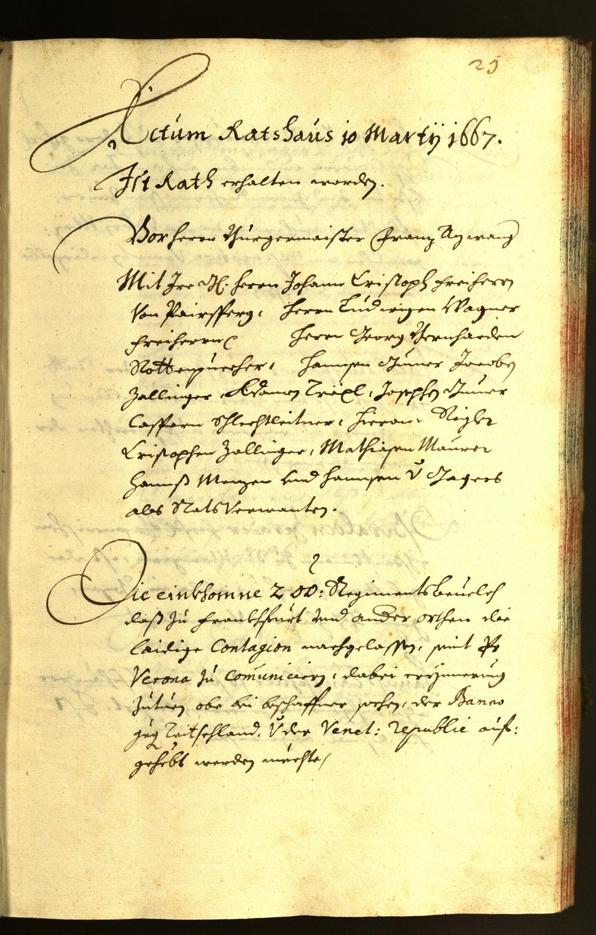 25
Actum Ratshaus 10 Martij 1667.
Ist Rath erhalten worden.
Vor herrn Bürgermaister Franz Agwang
Mit Ire H. herrn Johann Cristoph Freiherrn
Von Pairsperg, herrn Ludwigen Wagner
Freiherrn herrn Georg Bernharden
Rottenpuecher, hannsen Juner Jacoben
Zallinger Adamen Trixl, Josephen Juner
Casparn Schlechtleitner, hieron: Sigler
Cristophen Zallinger, Mathiasen Maurer
hannß Menzen und hannsen Jagers
als Ratsverwanten.
Die einkhomne 2 OÖ: Regimentsbeuelch
daß zu Frankhfurt und ander orthen die
laidige Contagion nachgelassen, mit
Verona zu comuniciern, dabei erynnerung
zutuen obe bei beschaffner sachen, der Banno
geg Teitschland, V der Venet: republic auf:
gehebt werden mechte